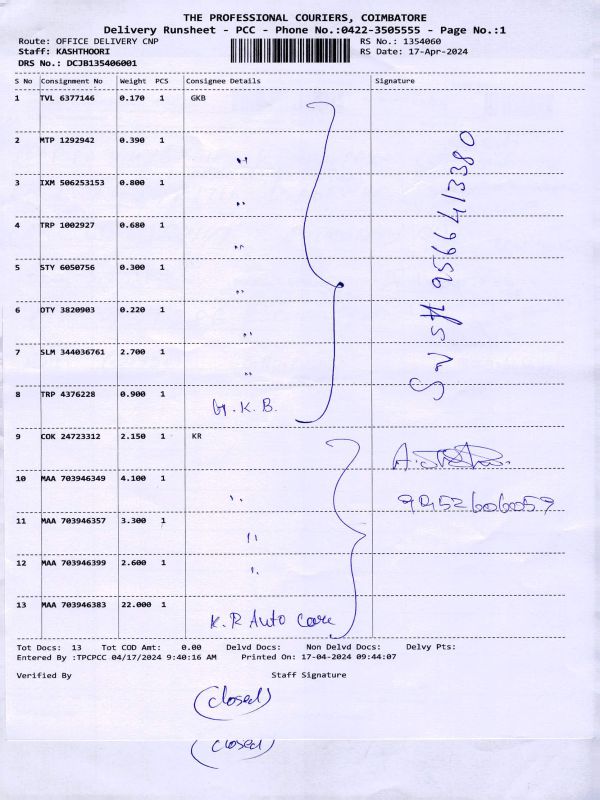 THE PROFESSIONAL COURIERS, COIMBATORE
Delivery Runsheet - PCC - Phone No.:0422-3505555 - Page No.:1
Route: OFFICE DELIVERY CNP RS No.: 1354060
Staff: KASHTHOORI RS Date: 17-Apr-2024
DRS No.: DCJB135406001
S No Consignment No Weight PCS Consignee Details Signature
1 TVL 6377146 0.170 1 GKB
2 MTP 1292942 0.390 1 "
3 IXM 506253153 0.800 1 "
4 TRP 1002927 0.680 1 "
5 STY 6050756 0.300 1 "
6 OTY 3820903 0.220 1 "
7 SLM 344036761 2.700 1 "
8 TRP 4376228 0.900 1 G.K.B.
9566413380
9 COK 24723312 2.150 1 KR
10 MAA 703946349 4.100 1 "
11 MAA 703946357 3.300 1 "
12 MAA 703946399 2.600 1 "
13 MAA 703946383 22.000 1 K.R Auto Care
Tot Docs: 13 Tot COD Amt: 0.00 Delvd Docs: Non Delvd Docs: Delvy Pts:
Entered By :TPCPCC 04/17/2024 9:40:16 AM Printed On: 17-04-2024 09:44:07
Verified By Staff Signature
(closed)
(closed)